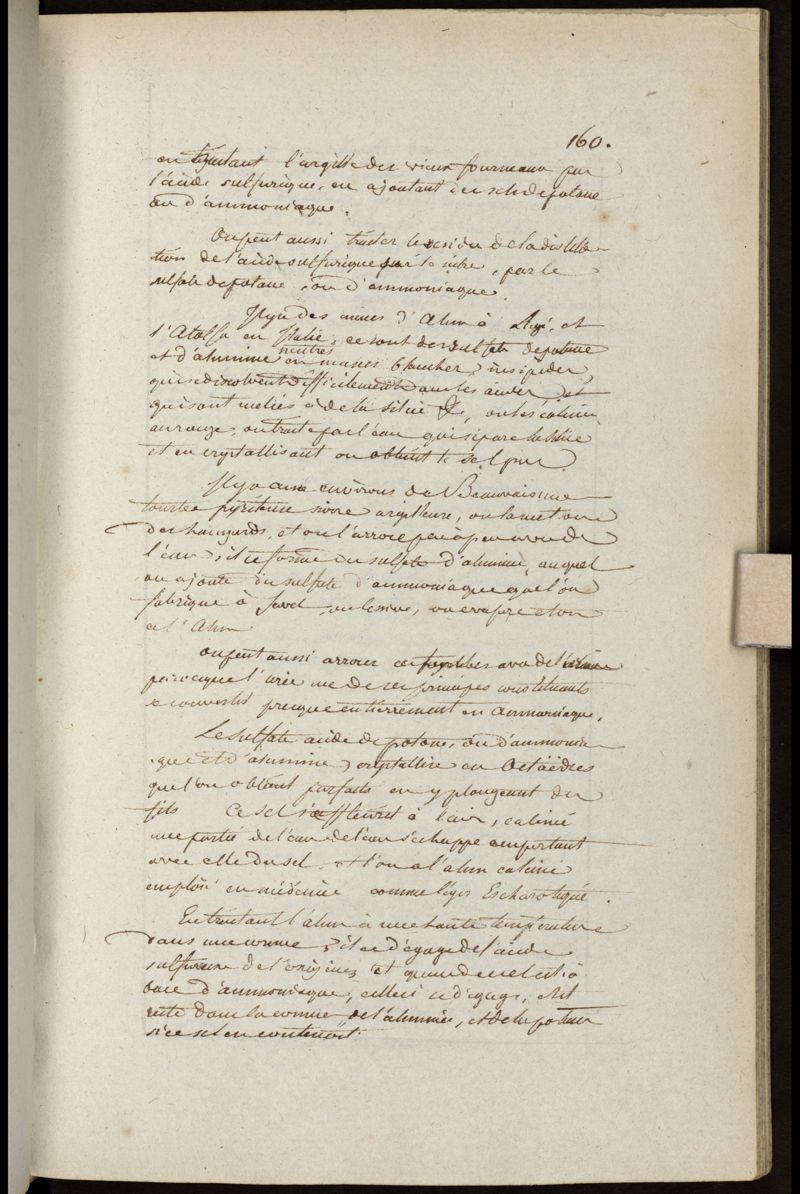 160.
en traitant l'argille des vieux fourneaux par
l'acide sulfurique, en ajoutant du sel de potasse
ou d'ammoniaque.
On peut aussi traiter le residu de la distilla-
tion de l'acide sulfurique sur le nitre, par le
sulfate de potasse, ou d'ammoniaque.
Il y a des mines d'Alun à et
l'A en Italie, ce sont des sulfate de potasse
et d'alumine neutres en masses blanches, insipides,
qui se dissolvent difficilement dans les acides et
qui sont meliés à de la silice &c, on les calcine
au rouge, on traite par l'eau qui separe la silice
et en crystallisant on obtient le sel pur.
Il y a aux environs de Beauvais une
tourbe pyriteuse noire argilleuse, on la met sous
des hangards, et on l'arrose peu à peu avec de
l'eau, il se forme du sulfate d'alumine, auquel
on ajoute du sulfate d'ammoniaque que l'on
fabrique à Javel, on lessive, on evapore et on
a l'Alun
on peut aussi arroser ces tourbes avec de l'urine
parceque l'urée une de ses principes constituants
se convertit presque entierement en Ammoniaque.
Le sulfate acide de potasse, ou d'ammonia-
que et d'alumine, crystallise en Octaèdres
que l'on obtient parfaits en y plongeant des
fils Ce sel s'effleurit à l'air, calciné
une partie de l'eau de l'eau s'echappe emportant
avec elle du sel, et l'on a l'alun calciné
emploié en médecine comme léger Escharotique.
En traitant l'alun à une haute température
dans une cornue, il se dégage de l'acide
sulfureux de l'oxigene, et quand ce sel est à
base d'ammoniaque, celle ci se dégage, et il
reste dans la cornue de l'alumine, et de la potasse
si ce sel en contenoit.